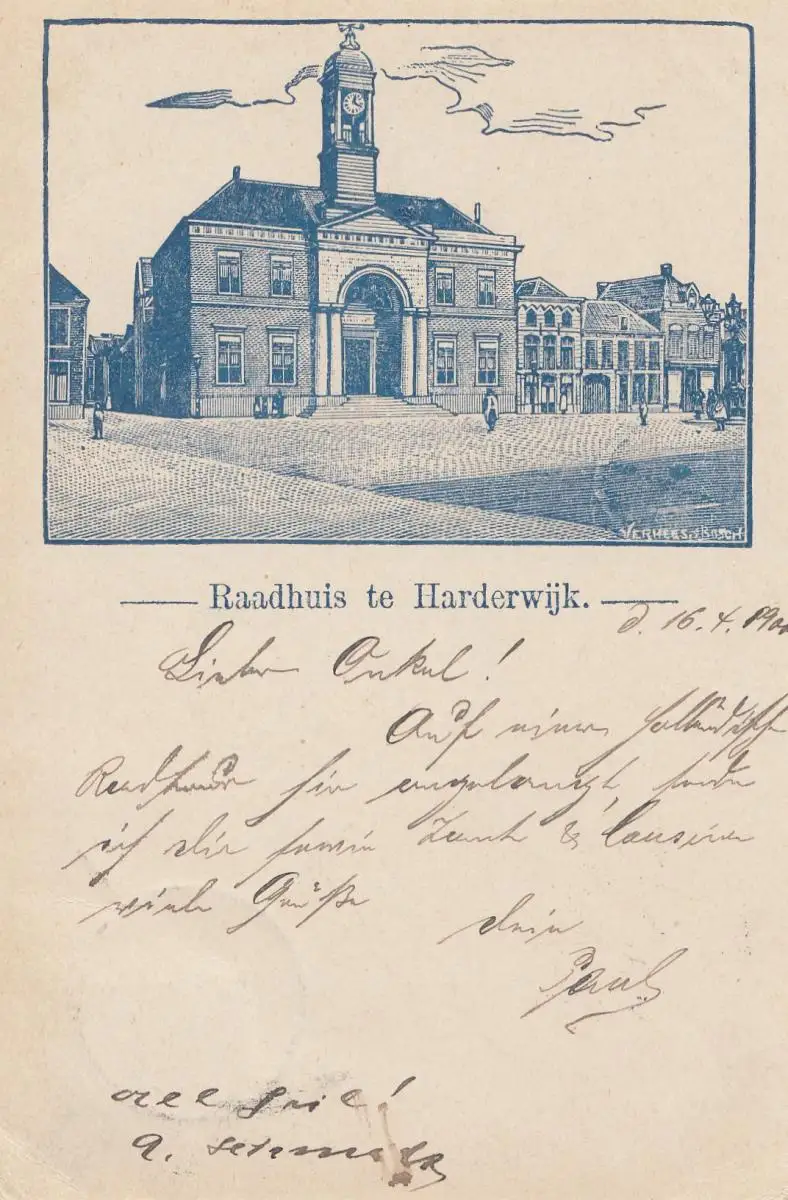 VERHEES D. BOSCH
Raadhuis te Harderwijk.
d. 16. 4. 1900
Lieber Onkel!
Auf einer holländischen
hier angelangt, sende
ich dir sowie Tante &
viele Grüße
dein
Paul